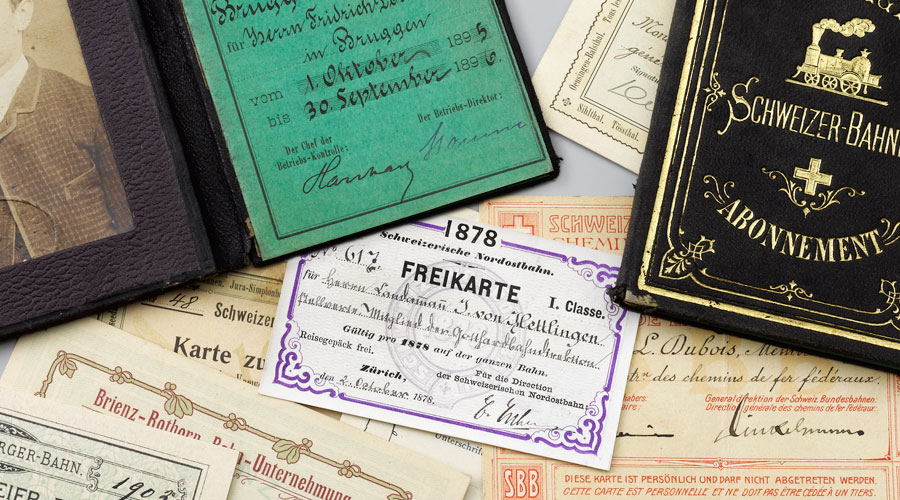 für Herrn Friedrich
in Bruggen
vom 1. Oktober 1895
bis 30. September 1896.
Der Chef der
Betriebs-Kontrolle:
Der Betriebs-Direktor:
Oensingen-Balsthal.
Sihlthal, Tössthal.
SCHWEIZER-BAHN
ABONNEMENT
1878
Schweizerische Nordostbahn.
No. 617
FREIKARTE
I. Classe.
für Herrn Landaman J. von Hettlingen
Mitglied der Gotthardbahndirektion
Gültig pro 1878 auf der ganzen Bahn.
Reisegepäck frei.
Für die Direction
der Schweizerischen Nordostbahn:
Zürich,
den 2. Oktober 1878.
Jura-Simplon
48
Schweizer
Karte zu
Unterschrift
Brienz-Rothorn-Bahn-Unternehmung
BERGER-BAHN.
1905
SCHWEIZ
CHEMIN
L. Dubois,
des chemins de fer fédéraux.
Generaldirektion der Schweiz. Bundesbahnen:
Direction générale des chemins de fer fédéraux:
SBB
DIESE KARTE IST PERSÖNLICH UND DARF NICHT ABGETRETEN WERDEN
CETTE CARTE EST PERSONNELLE ET NE DOIT PAS ÊTRE CÉDÉE À UN TIERS.